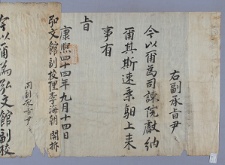 右副承旨尹
今以爾爲司諫院獻納
爾其斯速乘馹上來
事有
旨
康熙四十四年九月十四日
弘文館副校理李海朝 開拆
同副承旨
今以爾爲弘文館副校